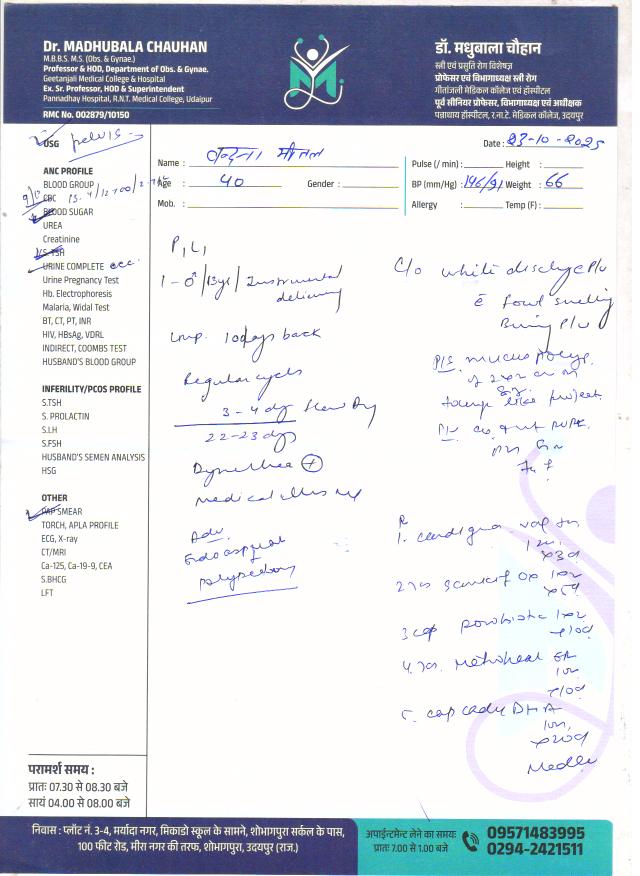 Dr. MADHUBALA CHAUHAN
M.B.B.S. M.S. (Obs. & Gynae.)
Professor & HOD, Department of Obs. & Gynae.
Geetanjali Medical College & Hospital
Ex. Sr. Professor, HOD & Superintendent
Pannadhay Hospital, R.N.T. Medical College, Udaipur
RMC No. 002879/10150
डॉ. मधुबाला चौहान
स्त्री एवं प्रसुति रोग विशेषज्ञ
प्रोफेसर एवं विभागाध्यक्ष स्त्री रोग
गीतांजली मेडिकल कॉलेज एवं हॉस्पीटल
पूर्व सीनियर प्रोफेसर, विभागाध्यक्ष एवं अधीक्षक
पन्नाधाय हॉस्पीटल, र.ना.टे. मेडिकल कॉलेज, उदयपुर
USG pelvis
Date : 23-10-2025
Name :
Pulse (/ min) : Height :
Age : 40 Gender :
BP (mm/Hg) : 146/91 Weight : 66
Mob. :
Allergy : Temp (F) :
ANC PROFILE
BLOOD GROUP
CBC
BLOOD SUGAR
UREA
Creatinine
S.TSH
URINE COMPLETE
Urine Pregnancy Test
Hb. Electrophoresis
Malaria, Widal Test
BT, CT, PT, INR
HIV, HBsAg, VDRL
INDIRECT, COOMBS TEST
HUSBAND'S BLOOD GROUP
INFERILITY/PCOS PROFILE
S.TSH
S. PROLACTIN
S.LH
S.FSH
HUSBAND'S SEMEN ANALYSIS
HSG
OTHER
PAP SMEAR
TORCH, APLA PROFILE
ECG, X-ray
CT/MRI
Ca-125, Ca-19-9, CEA
S.BHCG
LFT
P1L1
1 - ♂ / 13yr / Instrumental
delivery
Lmp. 10 days back
Regular cycles
3-4 dy
22-23 dys
Adv
polypectomy
C/o white discharge P/v
c̄ foul smelling
P/S mucus polyp
tongue like project
R
1.
x3d
x5d
3 cap
x10d
x10d
5. cap cady DHA
x20d
परामर्श समय :
प्रातः 07.30 से 08.30 बजे
सायं 04.00 से 08.00 बजे
निवास : प्लॉट नं. 3-4, मर्यादा नगर, मिकाडो स्कूल के सामने, शोभागपुरा सर्कल के पास,
100 फीट रोड, मीरा नगर की तरफ, शोभागपुरा, उदयपुर (राज.)
अपाईन्टमेन्ट लेने का समयः
प्रातः 7.00 से 1.00 बजे
09571483995
0294-2421511